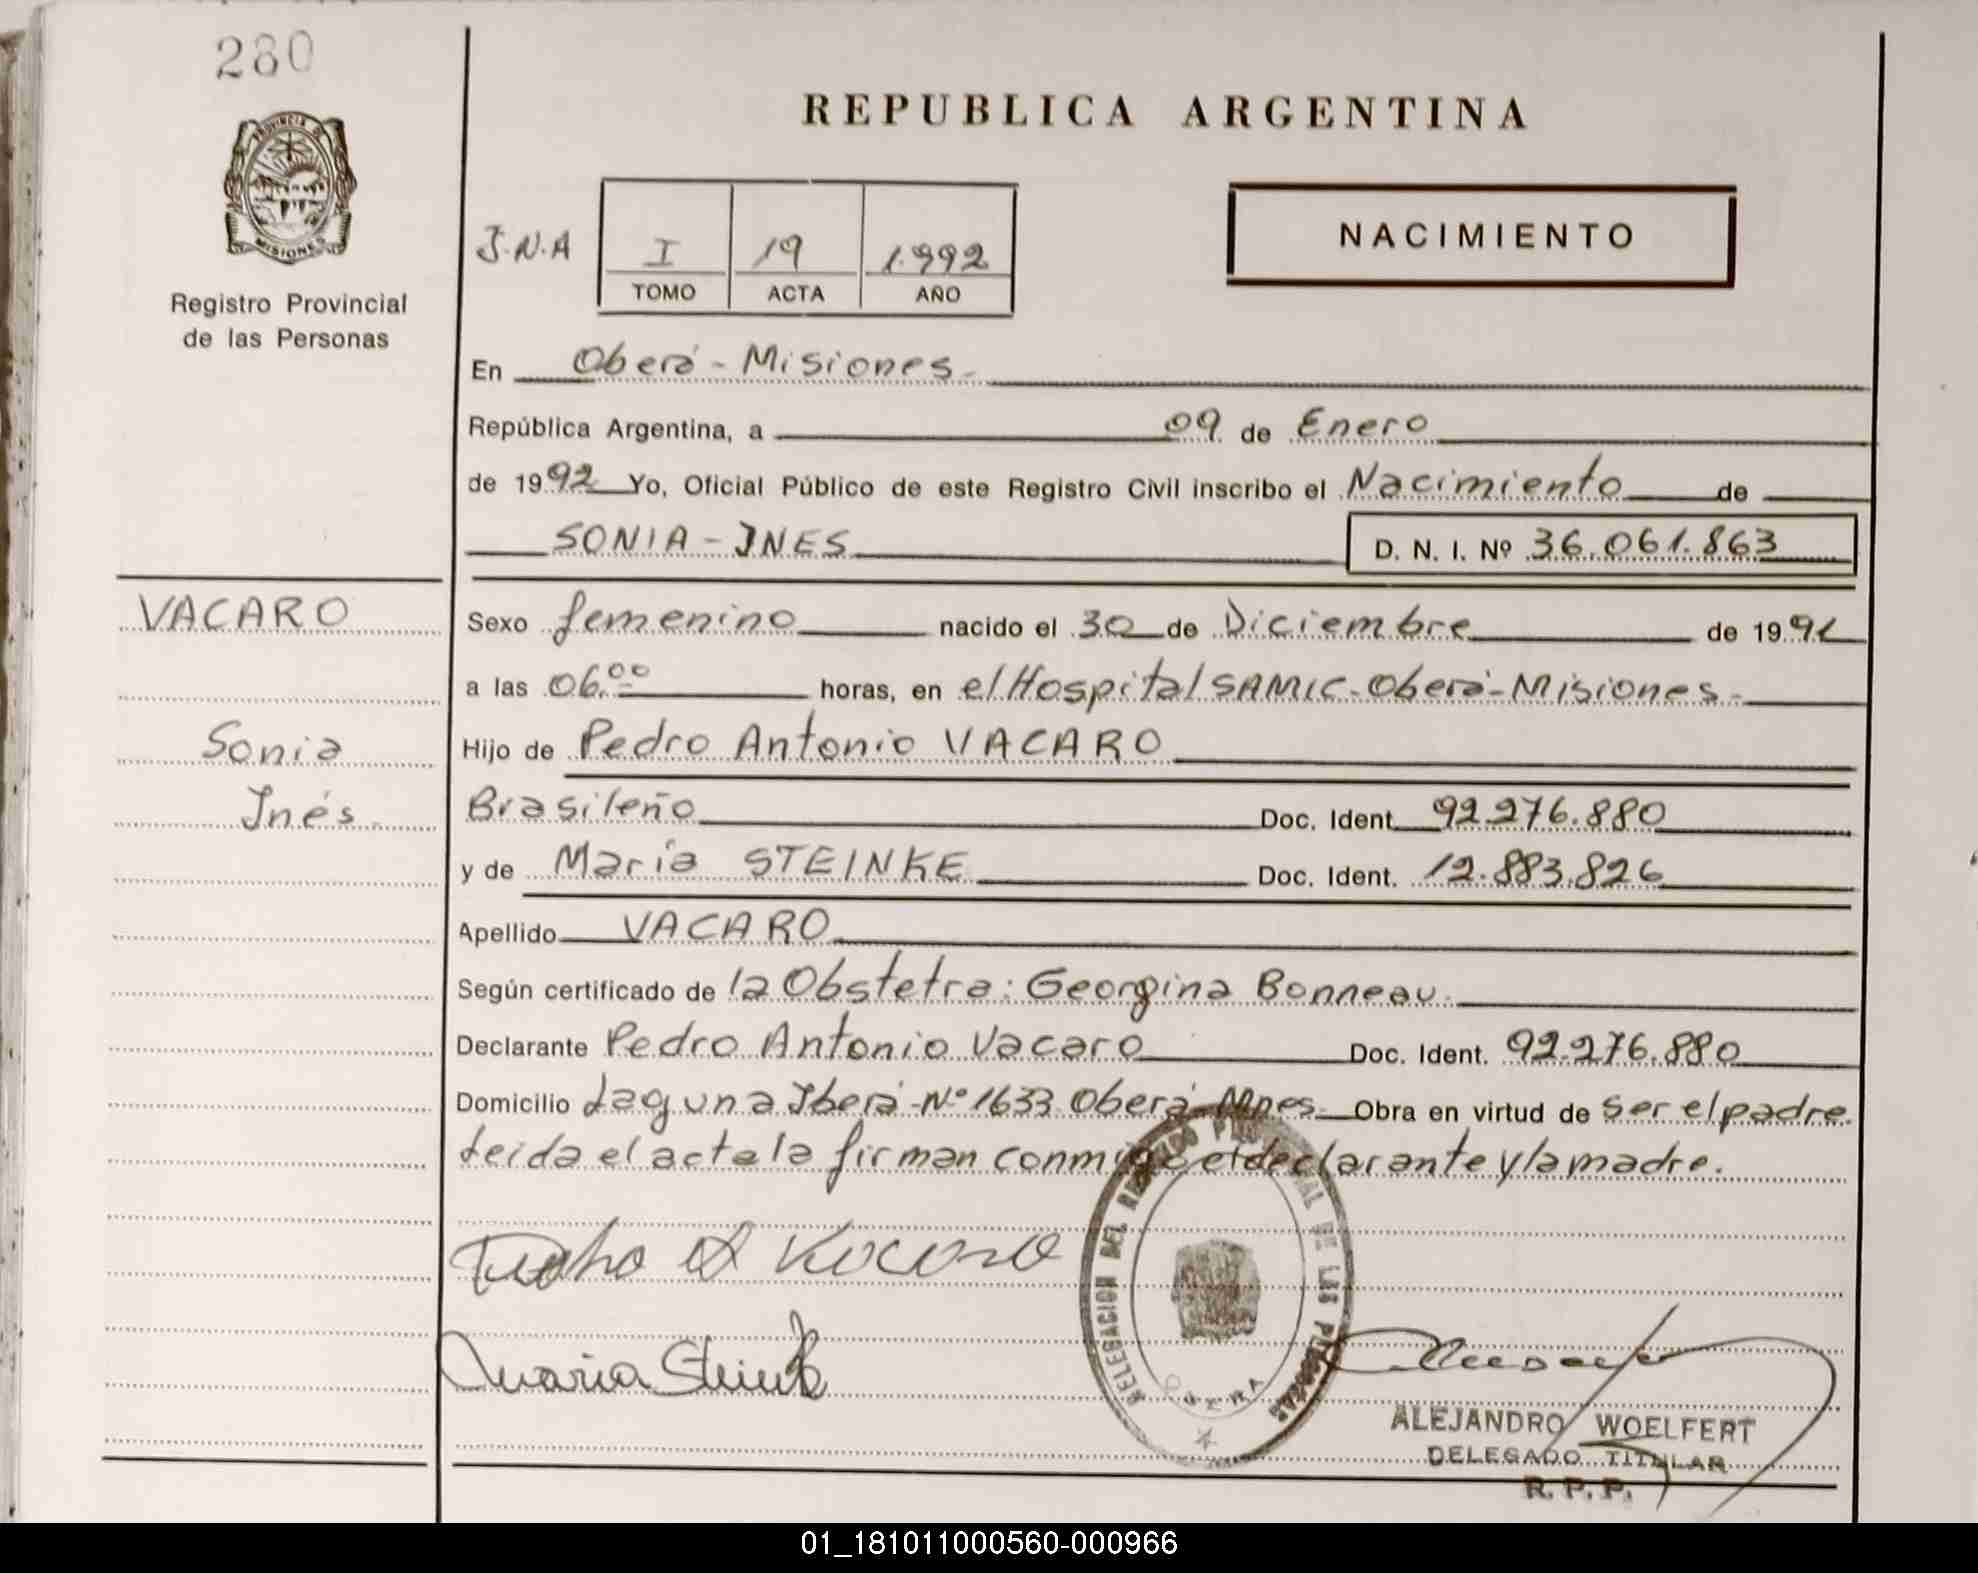 280
PROVINCIA DE
MISIONES
Registro Provincial
de las Personas
REPUBLICA ARGENTINA
J.N.A
I 19 1.992
TOMO ACTA AÑO
NACIMIENTO
En Oberá - Misiones.
República Argentina, a 09 de Enero
de 1992 Yo, Oficial Público de este Registro Civil inscribo el Nacimiento de
SONIA - INES D. N. I. Nº 36.061.863
VACARO
Sonia
Inés.
Sexo femenino nacido el 30 de Diciembre de 1991
a las 06.00 horas, en el Hospital SAMIC - Oberá - Misiones.
Hijo de Pedro Antonio VACARO
Brasileño Doc. Ident. 92.276.880
y de María STEINKE Doc. Ident. 12.883.826
Apellido VACARO
Según certificado de la Obstetra: Georgina Bonneau.
Declarante Pedro Antonio Vacaro Doc. Ident. 92.276.880
Domicilio Laguna Iberá - Nº 1633 Oberá - Mnes. Obra en virtud de ser el padre.
Leída el acta la firman conmigo el declarante y la madre.
DELEGACION DEL REGISTRO PROVINCIAL DE LAS PERSONAS
OBERA
Maria Steinke
ALEJANDRO WOELFERT
DELEGADO TITULAR
R. P. P.
01_181011000560-000966